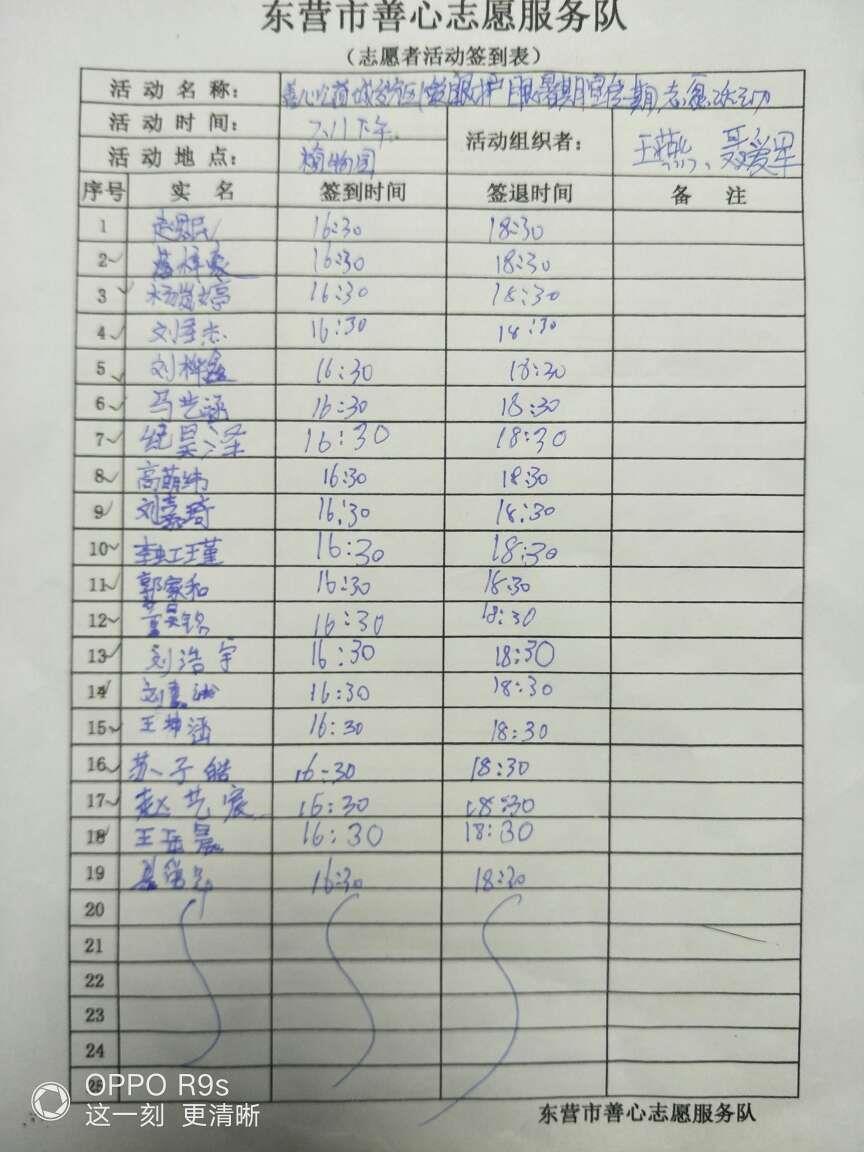 东营市善心志愿服务队
（志愿者活动签到表）
活动名称：
活动时间： 7.11下午 活动组织者： 王燕、聂爱军
活动地点： 植物园
序号 实名 签到时间 签退时间 备注
1 16:30 18:30
2 16:30 18:30
3 杨岚婷 16:30 18:30
4 16:30 18:30
5 刘桦鑫 16:30 18:30
6 马艺涵 16:30 18:30
7 纪昊泽 16:30 18:30
8 高萌纬 16:30 18:30
9 刘嘉琦 16:30 18:30
10 16:30 18:30
11 郭家和 16:30 18:30
12 董昊铭 16:30 18:30
13 刘浩宇 16:30 18:30
14 16:30 18:30
15 王坤涵 16:30 18:30
16 苏子皓 16:30 18:30
17 赵艺宸 16:30 18:30
18 王岳晨 16:30 18:30
19 16:30 18:30
20
21
22
23
24
25
东营市善心志愿服务队
OPPO R9s
这一刻 更清晰